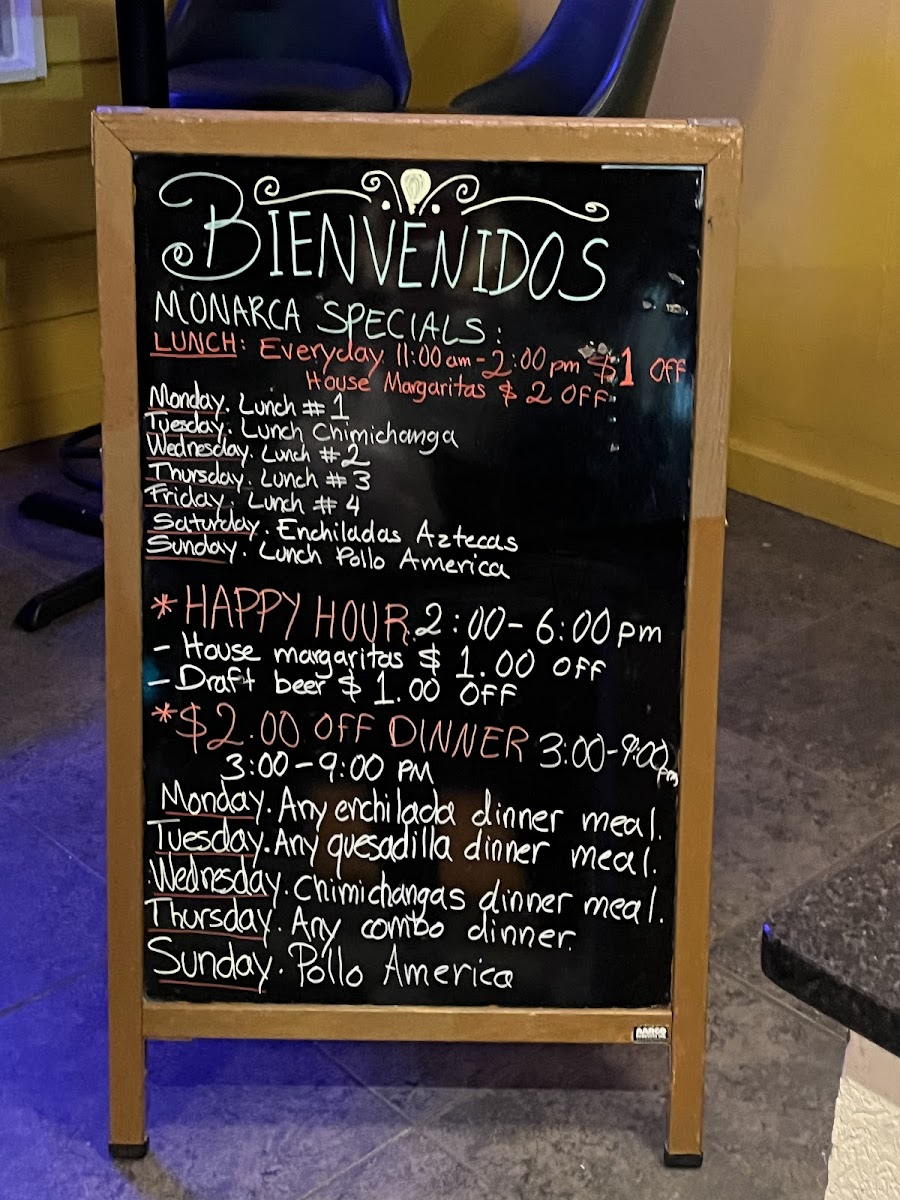 BIENVENIDOS
MONARCA SPECIALS:
LUNCH: Everyday 11:00 am - 2:00 pm $1 OFF
House Margaritas $ 2 OFF
Monday. Lunch # 1
Tuesday. Lunch Chimichanga
Wednesday. Lunch # 2
Thursday. Lunch # 3
Friday. Lunch # 4
Saturday. Enchiladas Aztecas
Sunday. Lunch Pollo America
* HAPPY HOUR. 2:00 - 6:00 pm
- House margaritas $ 1.00 OFF
- Draft beer $ 1.00 OFF
* $2.00 OFF DINNER 3:00-9:00 pm
3:00-9:00 PM
Monday. Any enchilada dinner meal.
Tuesday. Any quesadilla dinner meal.
Wednesday. Chimichangas dinner meal.
Thursday. Any combo dinner.
Sunday. Pollo America
AARCO